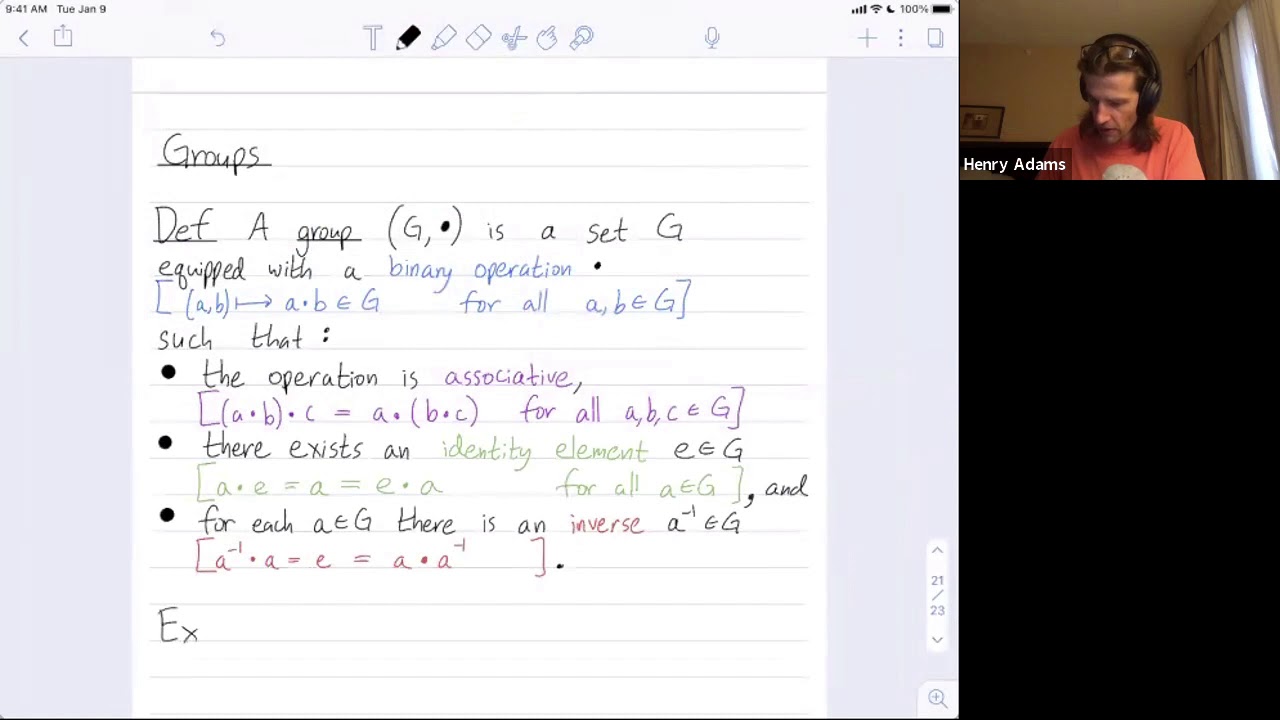 9:41 AM Tue Jan 9
100%
T
Groups
Def A group (G, •) is a set G
equipped with a binary operation •
[(a,b) ↦ a•b ∈ G for all a,b ∈ G]
such that :
• the operation is associative,
[(a•b)•c = a•(b•c) for all a,b,c ∈ G]
• there exists an identity element e ∈ G
[a•e = a = e•a for all a ∈ G], and
• for each a ∈ G there is an inverse a⁻¹ ∈ G
[a⁻¹•a = e = a•a⁻¹ ].
Ex
21
/
23
Henry Adams